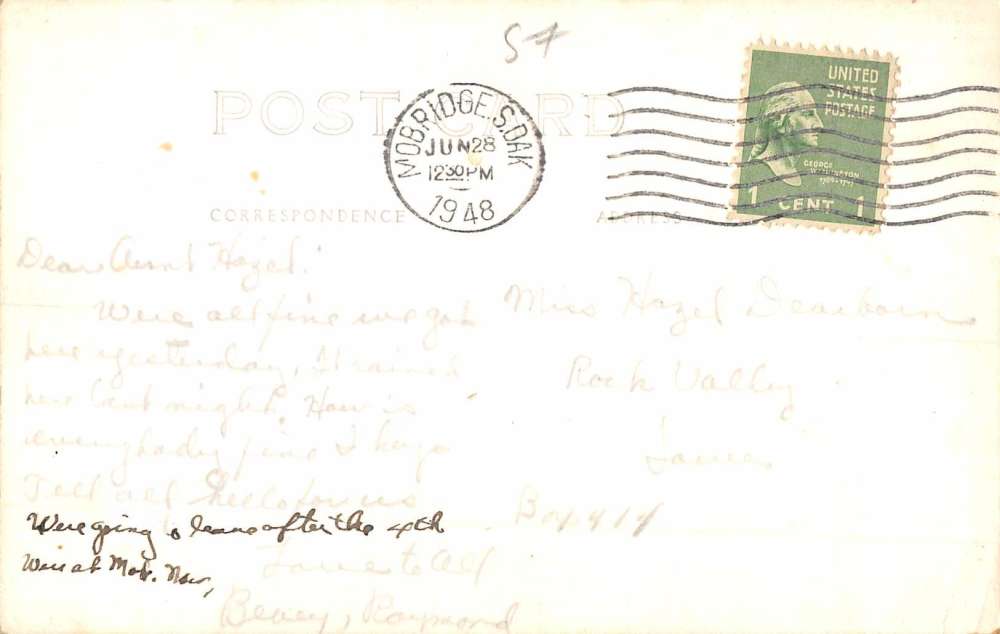 54
POST CARD
MOBRIDGE. S. DAK
JUN 28
12 30 PM
1948
UNITED
STATES
POSTAGE
GEORGE
WASHINGTON
1789-1797
1 CENT 1
CORRESPONDENCE
ADDRESS
Dear Aunt Hazel:
Were all fine we got
here yesterday, It rained
here last night. How is
everybody fine I hope
Tell all hello for us
Were going to leave after the 4th
Were at Mob. Now,
Love to All
Raymond
Miss Hazel Dearborn
Rock Valley
Iowa
Box 414